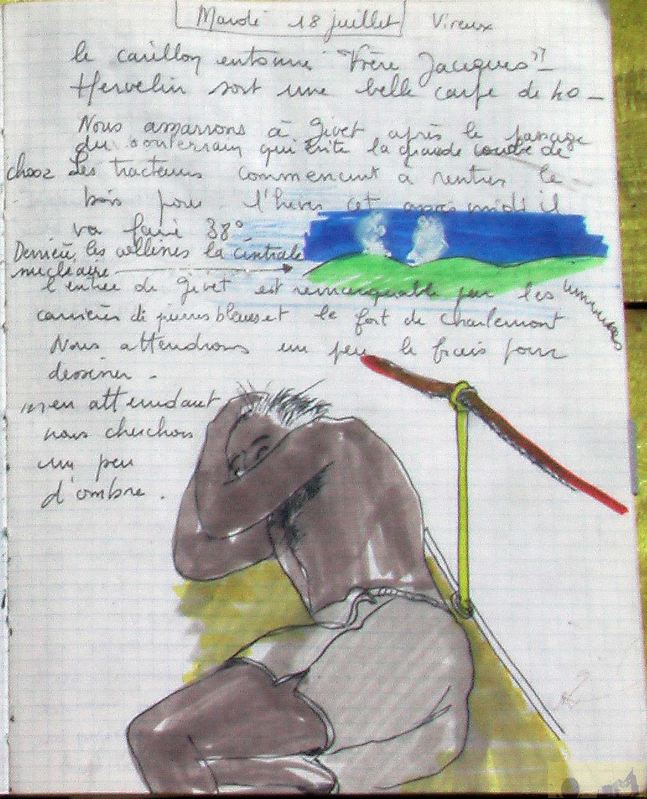 Mardi 18 juillet Vireux
le carillon entonne "Frère Jacques"
Hervelin sort une belle carpe de 40
Nous amarrons à Givet après le passage
du souterrain qui évite la grande boucle de
chooz Les tracteurs commencent à rentrer le
bois pour l'hiver cet après midi il
va faire 38°
Derrière les collines la centrale
nucléaire
l'entrée de Givet est remarquable par les immenses
carrières de pierres bleues et le fort de Charlemont
Nous attendrons un peu le frais pour
dessiner.
en attendant
nous cherchons
un peu
d'ombre.